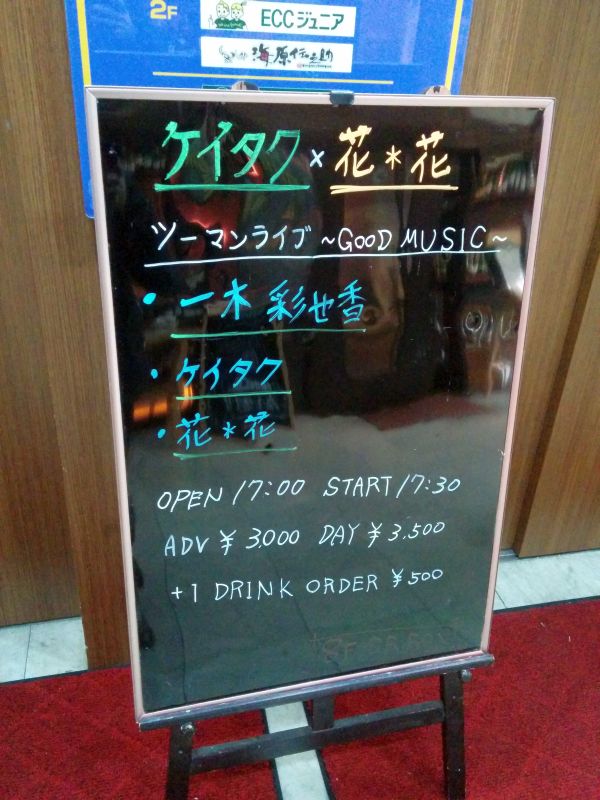 2F
ECCジュニア
海原
ケイタク×花*花
ツーマンライブ ~GOOD MUSIC~
・一木 彩也香
・ケイタク
・花*花
OPEN 17:00 START 17:30
ADV ¥3,000 DAY ¥3,500
+1 DRINK ORDER ¥500